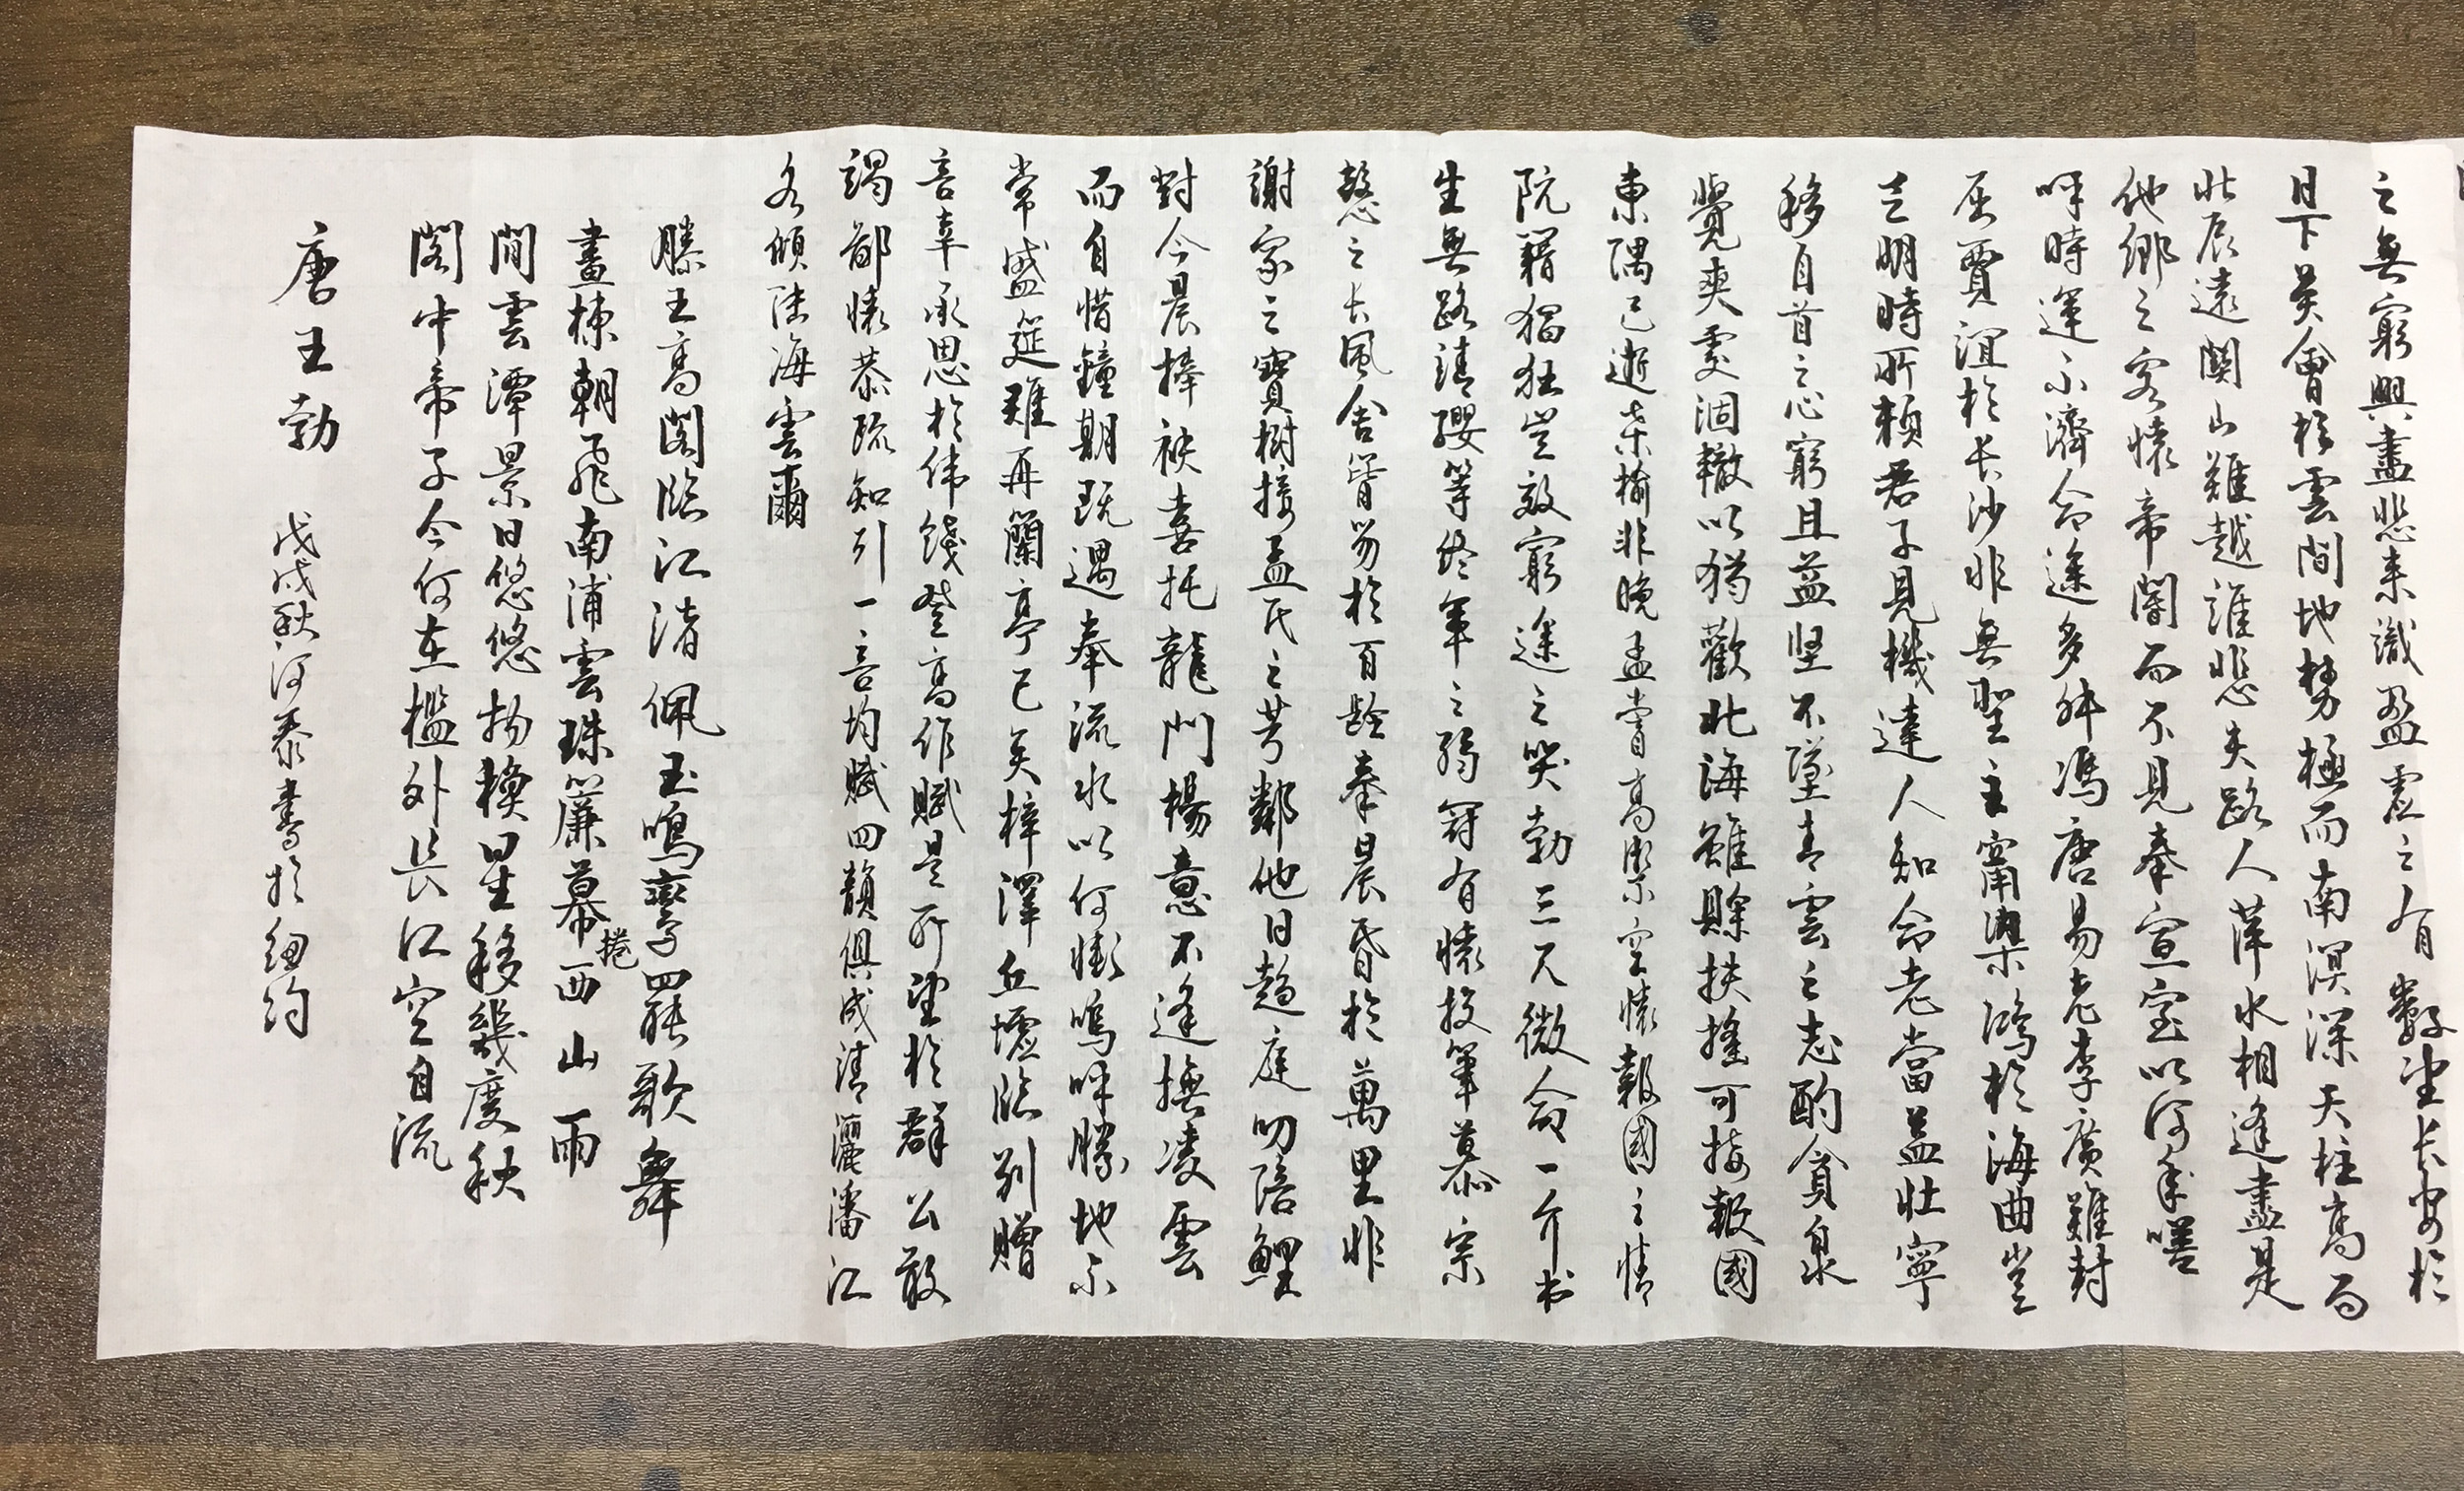 之無窮興盡悲來識盈虛之有數望长安於
日下吴會於雲間地势極而南溟深天柱高而
北辰遠関山難越誰悲失路人萍水相逢盡是
他鄉之客懷帝閽而不見奉宣室以何年嗟
呼時運不濟命途多舛馮唐易老李廣難封
屈賈誼於长沙非無聖主竄梁鴻於海曲豈
乏明時所賴君子見機達人知命老當益壮寧
移白首之心窮且益坚不墜青雲之志酌貪泉
覺爽處涸轍以猶歡北海雖賒扶摇可接報國
東隅已逝桑榆非晚孟嘗高潔空懷報國之情
阮籍猖狂豈效窮途之哭勃三尺微命一介书
生無路請缨等终軍之弱冠有懷投筆慕宗
愨之长風舍簪笏於百龄奉晨昏於萬里非
謝家之寳樹接孟氏之芳鄰他日趨庭叨陪鯉
對今晨捧袂喜托龍門楊意不逢撫凌雲
而自惜鐘期既遇奏流水以何慚嗚呼勝地不
常盛筵難再蘭亭已矣梓澤丘墟临别贈
言幸承恩於伟餞登高作賦是所望於群公敢
竭鄙懷恭疏短引一言均賦四韻俱成請灑潘江
各傾陸海雲爾
滕王高閣临江渚佩玉鳴鸞罷歌舞
畫棟朝飛南浦雲珠簾暮捲西山雨
間雲潭景日悠悠物换星移幾度秋
閣中帝子今何在檻外長江空自流
唐王勃
戊戌秋河泰書於纽约